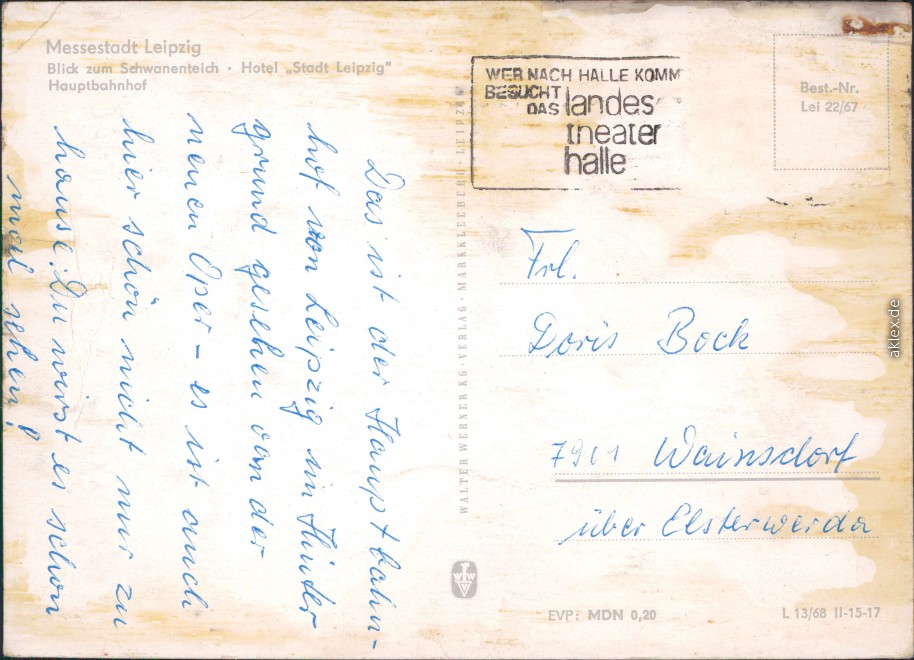 Messestadt Leipzig
Blick zum Schwanenteich · Hotel „Stadt Leipzig"
Hauptbahnhof
Das ist der Hauptbahn-
hof von Leipzig im Hinder
grund gesehen von der
neuen Oper – es ist auch
hier schön nicht nur zu
hause. Du wirst es schon
mal sehen!
WALTER WERNER KG VERLAG · MARKKLEEBERG · LEIPZIG
WER NACH HALLE KOMM
BESUCHT
DAS landes
theater
halle
Best.-Nr.
Lei 22/67
Frl.
Doris Bock
7901 Wainsdorf
über Elsterwerda
EVP: MDN 0,20
L 13/68 II-15-17
aklex.de